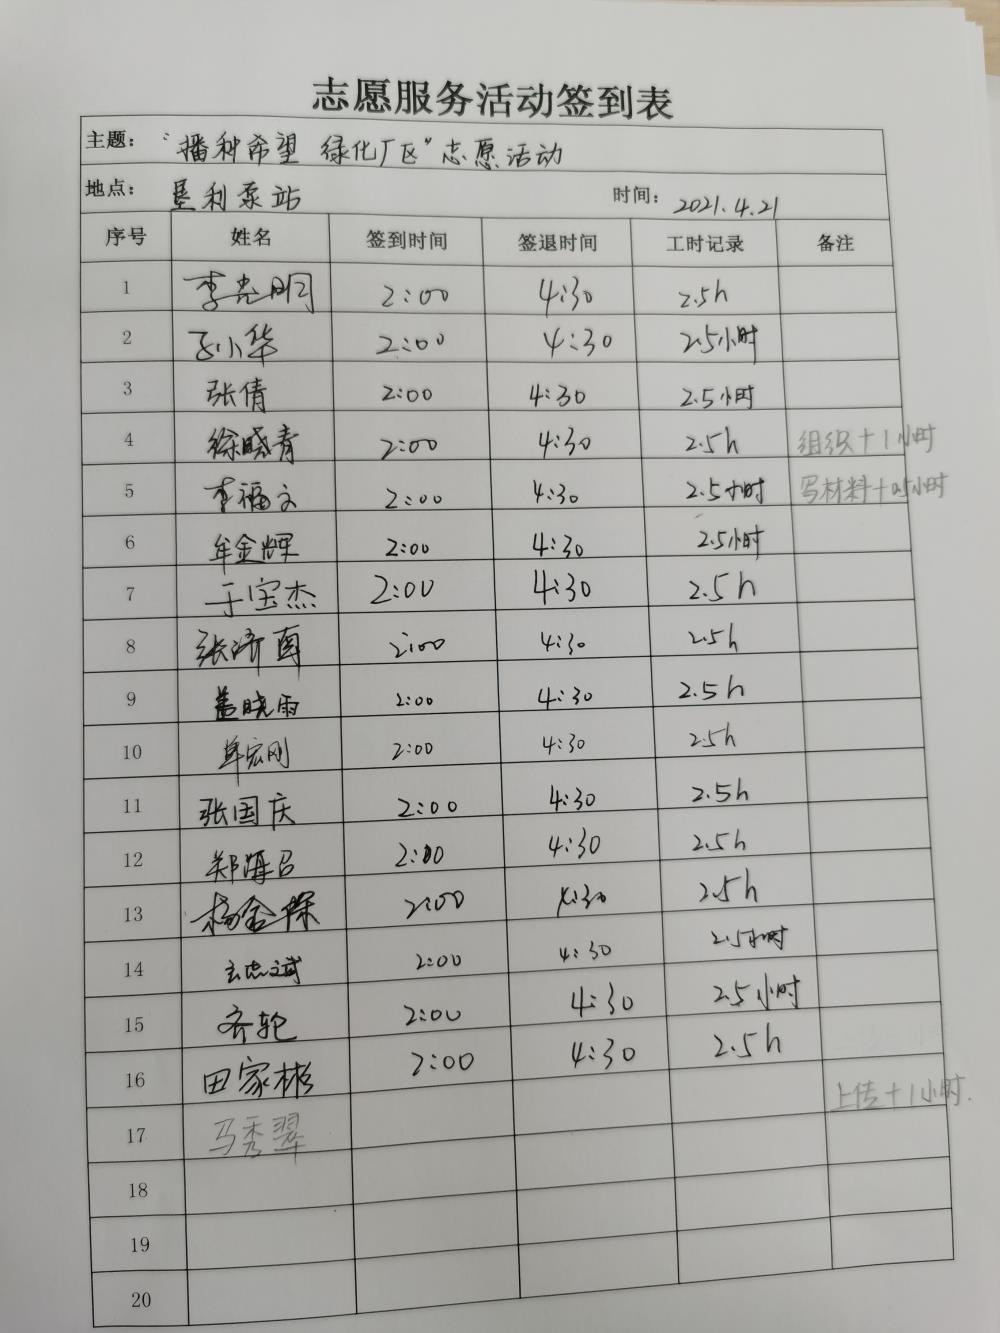 志愿服务活动签到表
主题： “播种希望 绿化厂区”志愿活动
地点： 垦利泵站 时间： 2021.4.21
序号 姓名 签到时间 签退时间 工时记录 备注
1 李光明 2:00 4:30 2.5h
2 孙小华 2:00 4:30 2.5小时
3 张倩 2:00 4:30 2.5小时
4 徐晓青 2:00 4:30 2.5h 组织+1小时
5 李福文 2:00 4:30 2.5小时 写材料+0.5小时
6 牟金辉 2:00 4:30 2.5小时
7 于宝杰 2:00 4:30 2.5h
8 张济南 2:00 4:30 2.5h
9 盖晓雨 2:00 4:30 2.5h
10 单宏刚 2:00 4:30 2.5h
11 张国庆 2:00 4:30 2.5h
12 郑海 2:00 4:30 2.5h
13 杨金保 2:00 4:30 2.5h
14 2:00 4:30 2.5小时
15 齐轮 2:00 4:30 2.5小时
16 田家彬 2:00 4:30 2.5h
17 马秀翠 上传+1小时.
18
19
20